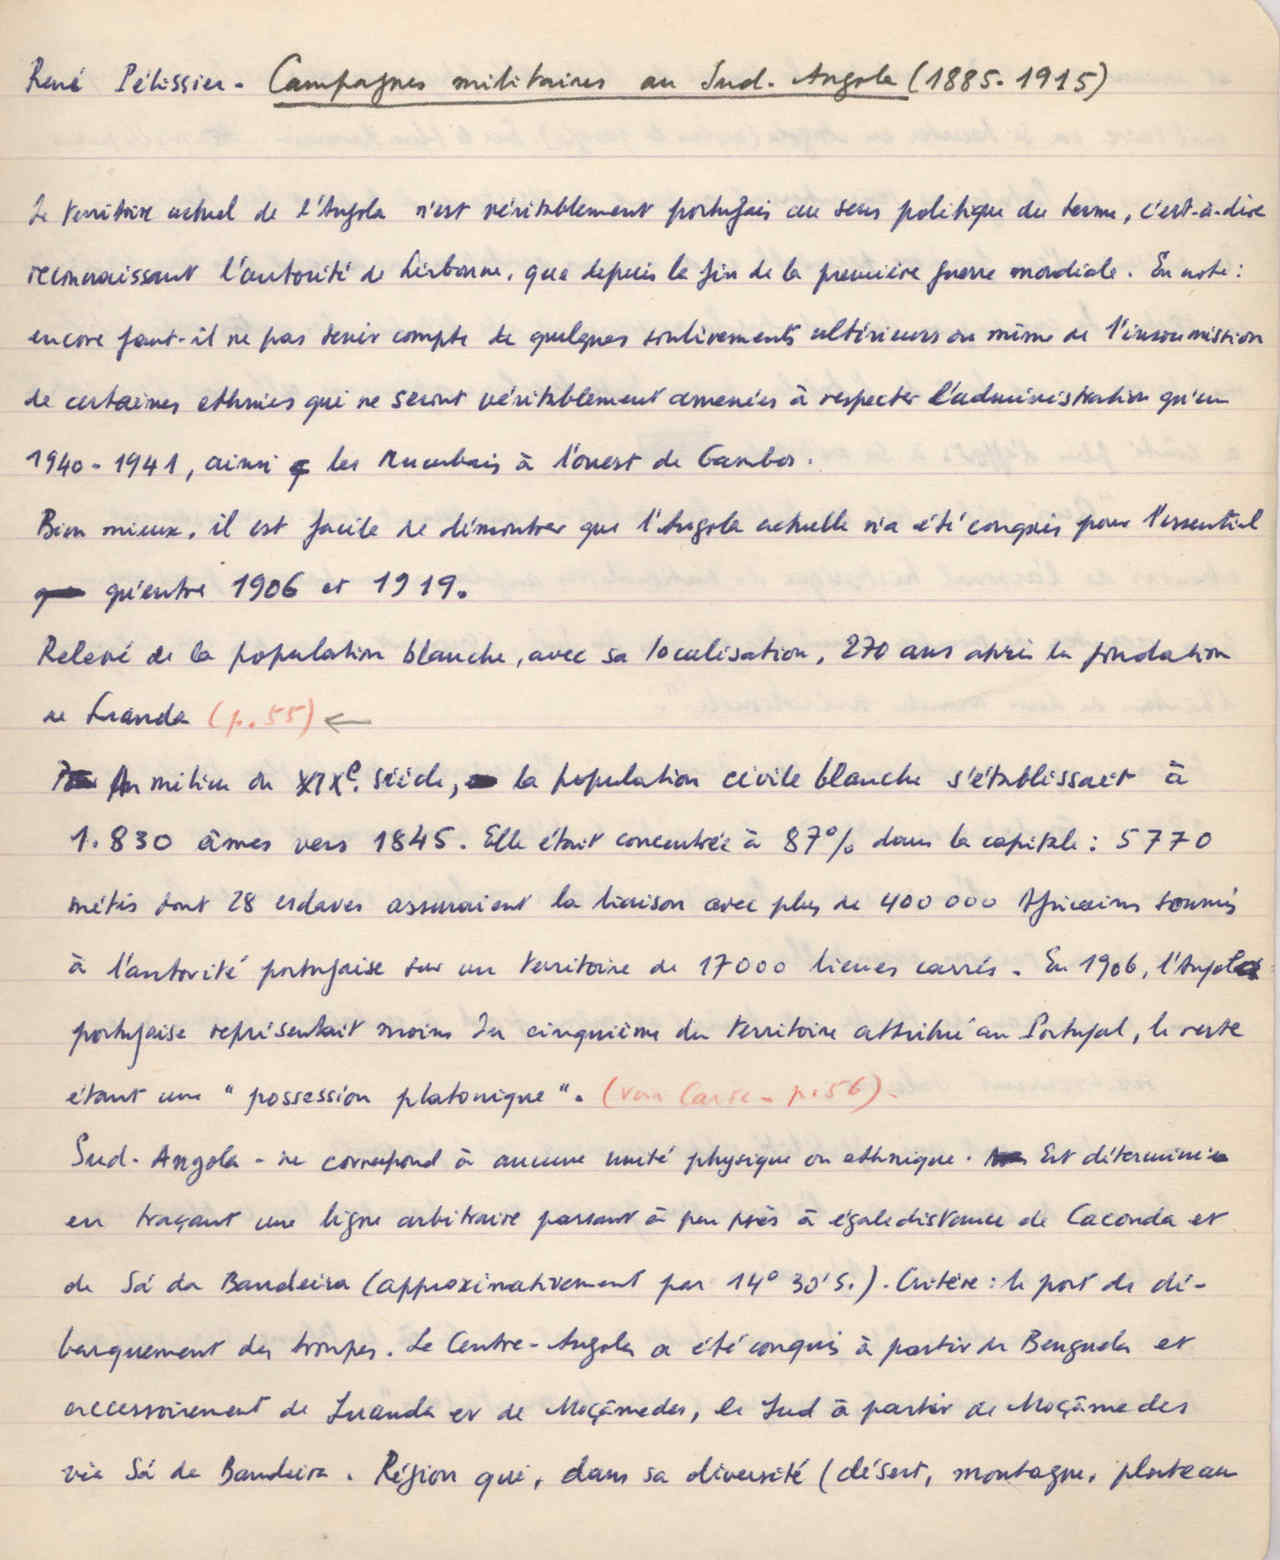 René Pélissier - Campagnes militaires au Sud-Angola (1885-1915)
Le territoire actuel de l'Angola n'est véritablement portugais au sens politique du terme, c'est-à-dire
reconnaissant l'autorité de Lisbonne, que depuis la fin de la première guerre mondiale. En note :
encore faut-il ne pas tenir compte de quelques soulèvements ultérieurs ou même de l'insoumission
de certaines ethnies qui ne seront véritablement amenées à respecter l'administration qu'en
1940-1941, ainsi q les Mucubais à l'ouest de Gambos.
Bien mieux, il est facile de démontrer que l'Angola actuelle n'a été conquis pour l'essentiel
qu'entre 1906 et 1919.
Relevé de la population blanche, avec sa localisation, 270 ans après la fondation
de Luanda (p.55) ←
Au milieu du XIXe. siècle, la population civile blanche s'établissait à
1.830 âmes vers 1845. Elle était concentrée à 87% dans la capitale : 5770
métis dont 28 esclaves assuraient la liaison avec plus de 400 000 Africains soumis
à l'autorité portugaise sur un territoire de 17000 lieues carrés. En 1906, l'Angola
portugaise représentait moins du cinquième du territoire attribué au Portugal, le reste
étant une "possession platonique". (voir Carte - p.56).
Sud-Angola - ne correspond à aucune unité physique ou ethnique. Est déterminée
en traçant une ligne arbitraire passant à peu près à égale distance de Caconda et
de Sá da Bandeira (approximativement par 14° 30'S.). Critère : le port de dé-
barquement des troupes. Le Centre-Angola a été conquis à partir de Benguela et
accessoirement de Luanda et de Moçâmedes, le Sud à partir de Moçâmedes
via Sá da Bandeira. Région qui, dans sa diversité (désert, montagne, plateau